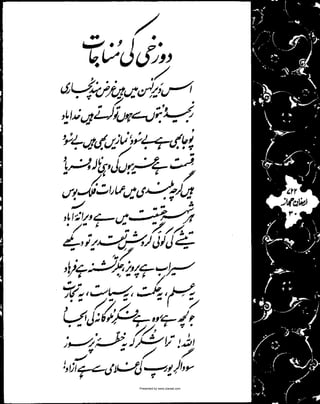 دوزخی کی مُناجات
اس دیرِ کُہن میں ہیں غرض مند پُجاری
رنجیدہ بُتوں سے ہوں تو کرتے ہیں خدا یاد
پوجا بھی ہے بے سُود، نمازیں بھی ہیں بے سُود
قسمت ہے غریبوں کی وہی نالہ و فریاد
ہیں گرچہ بلندی میں عمارات فلک بوس
ہر شہر حقیقت میں ہے ویرانۂ آباد
تیشے کی کوئی گردشِ تقدیر تو دیکھے
سیراب ہے پرویز، جگر تشنہ ہے فرہاد
یہ علم، یہ حکمت، یہ سیاست، یہ تجارت
جو کچھ ہے، وہ ہے فکرِ ملوکانہ کی ایجاد
اللہ! ترا شکر کہ یہ خطۂ پُر سوز
سوداگرِ یورپ کی غلامی سے ہے آزاد!
۷۲۲
ارمغانِ حجاز
۳۰
Presented by www.ziaraat.com